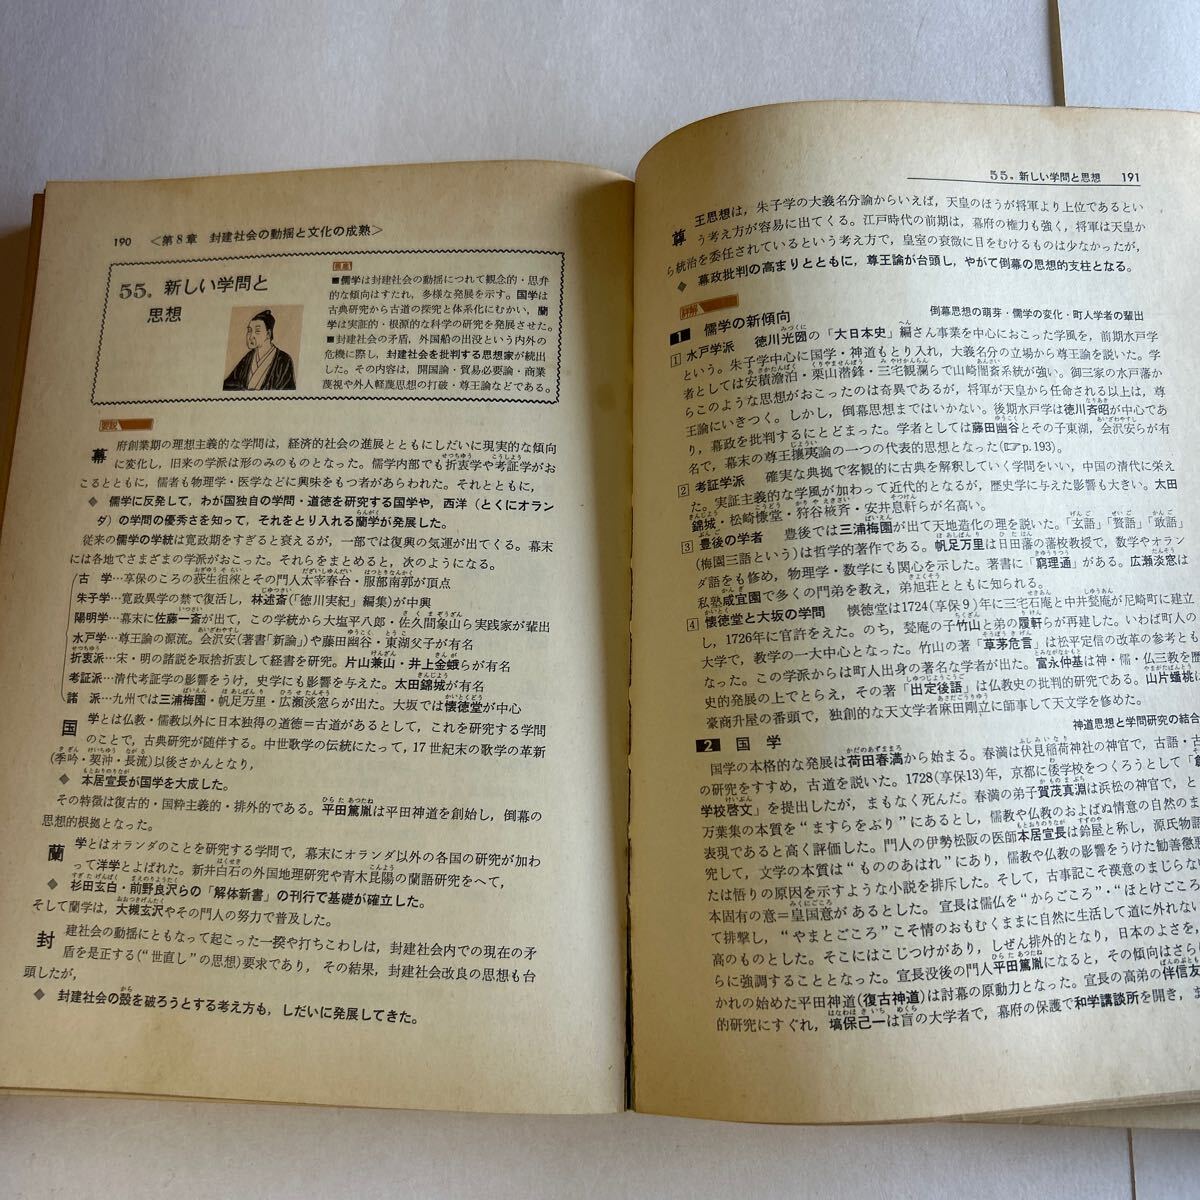 190 〈第8章 封建社会の動揺と文化の成熟〉
55. 新しい学問と
思想
■儒学は封建社会の動揺につれて観念的・思弁
的な傾向はすたれ，多様な発展を示す。国学は
古典研究から古道の探究と体系化にむかい，蘭
学は実証的・根源的な科学の研究を発展させた。
■封建社会の矛盾，外国船の出没という内外の
危機に際し，封建社会を批判する思想家が続出
した。その内容は，開国論・貿易必要論・商業
蔑視や外人軽蔑思想の打破・尊王論などである。
要説
幕府創業期の理想主義的な学問は，経済的社会の進展とともにしだいに現実的な傾向
に変化し，旧来の学派は形のみのものとなった。儒学内部でも折衷学や考証学がお
こるとともに，儒者も物理学・医学などに興味をもつ者があらわれた。それとともに，
◆ 儒学に反発して，わが国独自の学問・道徳を研究する国学や，西洋（とくにオラン
ダ）の学問の優秀さを知って，それをとり入れる蘭学が発展した。
従来の儒学の学統は寛政期をすぎると衰えるが，一部では復興の気運が出てくる。幕末
には各地でさまざまの学派がおこった。それらをまとめると，次のようになる。
古　学…享保のころの荻生徂徠とその門人太宰春台・服部南郭が頂点
朱子学…寛政異学の禁で復活し，林述斎(「徳川実紀」編集)が中興
陽明学…幕末に佐藤一斎が出て，この学統から大塩平八郎・佐久間象山ら実践家が輩出
水戸学…尊王論の源流。会沢安(著書「新論」)や藤田幽谷・東湖父子が有名
折衷派…宋・明の諸説を取捨折衷して経書を研究。片山兼山・井上金蛾らが有名
考証派…清代考証学の影響をうけ，史学にも影響を与えた。太田錦城が有名
諸　派…九州では三浦梅園・帆足万里・広瀬淡窓らが出た。大坂では懐徳堂が中心
国学とは仏教・儒教以外に日本独得の道徳＝古道があるとして，これを研究する学問
のことで，古典研究が随伴する。中世歌学の伝統にたって，17世紀末の歌学の革新
(季吟・契沖・長流)以後さかんとなり，
◆ 本居宣長が国学を大成した。
その特徴は復古的・国粋主義的・排外的である。平田篤胤は平田神道を創始し，倒幕の
思想的根拠となった。
蘭学とはオランダのことを研究する学問で，幕末にオランダ以外の各国の研究が加わ
って洋学とよばれた。新井白石の外国地理研究や青木昆陽の蘭語研究をへて，
◆ 杉田玄白・前野良沢らの「解体新書」の刊行で基礎が確立した。
そして蘭学は，大槻玄沢やその門人の努力で普及した。
封建社会の動揺にともなって起こった一揆や打ちこわしは，封建社会内での現在の矛
盾を是正する(“世直し”の思想)要求であり，その結果，封建社会改良の思想も台
頭したが，
◆ 封建社会の殻を破ろうとする考え方も，しだいに発展してきた。
55. 新しい学問と思想 191
尊王思想は，朱子学の大義名分論からいえば，天皇のほうが将軍より上位であるとい
う考え方が容易に出てくる。江戸時代の前期は，幕府の権力も強く，将軍は天皇か
ら統治を委任されているという考え方で，皇室の衰微に目をむけるものは少なかったが，
◆ 幕政批判の高まりとともに，尊王論が台頭し，やがて倒幕の思想的支柱となる。
詳解
1 儒学の新傾向 倒幕思想の萌芽・儒学の変化・町人学者の輩出
1 水戸学派 徳川光圀の「大日本史」編さん事業を中心におこった学風を，前期水戸学
という。朱子学中心に国学・神道もとり入れ，大義名分の立場から尊王論を説いた。学
者としては安積澹泊・栗山潜鋒・三宅観瀾らで山崎闇斎系統が強い。御三家の水戸藩か
らこのような思想がおこったのは奇異であるが，将軍が天皇から任命される以上は，尊
王論にいきつく。しかし，倒幕思想まではいかない。後期水戸学は徳川斉昭が中心であ
り，幕政を批判するにとどまった。学者としては藤田幽谷とその子東湖，会沢安らが有
名で，幕末の尊王攘夷論の一つの代表的思想となった(☞p.193)。
2 考証学派 確実な典拠で客観的に古典を解釈していく学問をいい，中国の清代に栄え
た。実証主義的な学風が加わって近代的となるが，歴史学に与えた影響も大きい。太田
錦城・松崎慊堂・狩谷棭斉・安井息軒らが名高い。
3 豊後の学者 豊後では三浦梅園が出て天地造化の理を説いた。「玄語」「贅語」「敢語」
(梅園三語という)は哲学的著作である。帆足万里は日田藩の藩校教授で，数学やオラン
ダ語をも修め，物理学・数学にも関心を示した。著書に「窮理通」がある。広瀬淡窓は
私塾咸宜園で多くの門弟を教え，弟旭荘とともに知られる。
4 懐徳堂と大坂の学問 懐徳堂は1724(享保9)年に三宅石庵と中井甃庵が尼崎町に建立
し，1726年に官許をえた。のち，甃庵の子竹山と弟の履軒らが再建した。いわば町人の
大学で，教学の一大中心となった。竹山の著「草茅危言」は松平定信の改革の参考とも
なった。この学派からは町人出身の著名な学者が出た。富永仲基は神・儒・仏三教を歴
史的発展の上でとらえ，その著「出定後語」は仏教史の批判的研究である。山片蟠桃は
豪商升屋の番頭で，独創的な天文学者麻田剛立に師事して天文学を修めた。
2 国 学 神道思想と学問研究の結合
国学の本格的な発展は荷田春満から始まる。春満は伏見稲荷神社の神官で，古語・古
の研究をすすめ，古道を説いた。1728(享保13)年，京都に倭学校をつくろうとして「創
学校啓文」を提出したが，まもなく死んだ。春満の弟子賀茂真淵は浜松の神官で，と
万葉集の本質を“ますらをぶり”にあるとし，儒教や仏教のおよばぬ情意の自然のま
表現であると高く評価した。門人の伊勢松阪の医師本居宣長は鈴屋と称し，源氏物語
究して，文学の本質は“もののあはれ”にあり，儒教や仏教の影響をうけた勧善懲悪
たは悟りの原因を示すような小説を排斥した。そして，古事記こそ漢意のまじらな
本固有の意＝皇国意があるとした。宣長は儒仏を“からごころ”・“ほとけごころ
て排撃し，“やまとごころ”こそ情のおもむくままに自然に生活して道に外れない
高のものとした。そこにはこじつけがあり，しぜん排外的となり，日本のよさを，
らに強調することとなった。宣長没後の門人平田篤胤になると，その傾向はさら
かれの始めた平田神道(復古神道)は討幕の原動力となった。宣長の高弟の伴信友
的研究にすぐれ，塙保己一は盲の大学者で，幕府の保護で和学講談所を開き，ま